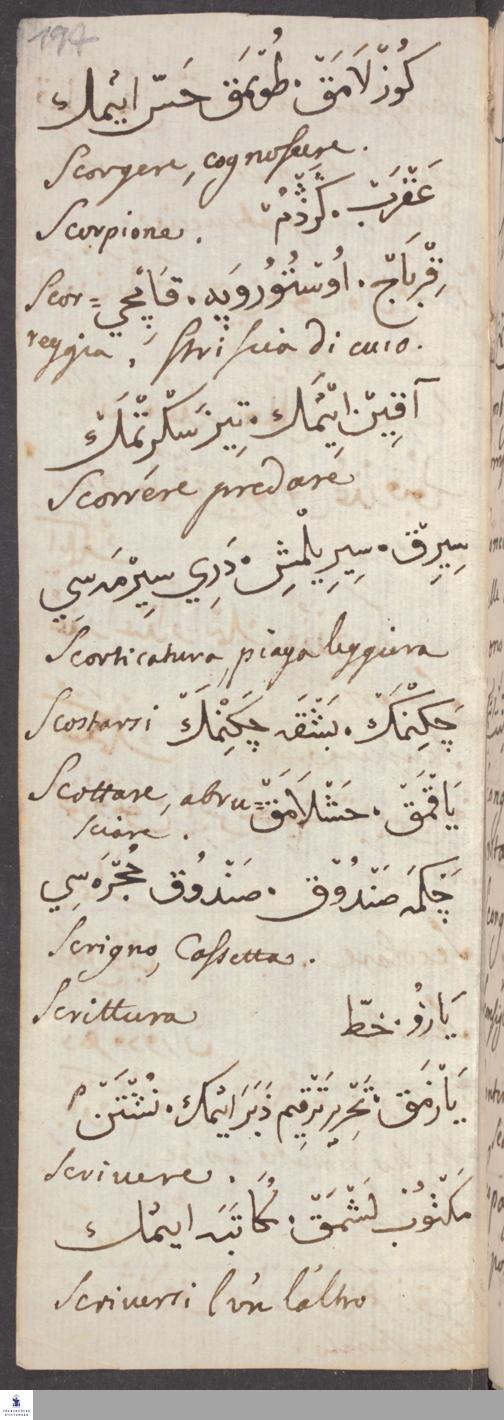 194
كُوزْلَامَقْ . طُويْمَقْ حَسّ ايتْمك
Scorgere, cognoscere.
عَقْرَبْ . كَژْدُمْ
Scorpione.
قِرْبَاجْ . اُوسْتُورُويَه . قَامْچِي Scor=
reggia, striscia di cuio.
آقِينْ ايتْمَكْ . تِيزْ سَكِرْتْمَكْ
Scorrere predare
سِيرِقْ . سِيرِيلْمِشْ . دَرِي سِيرْمَه سِي
Scorticatura, piaga leggiera
Scostarsi چَكِلْمَكْ . بَشْقَه چَكِنْمَكْ
Scottare, abru= يَاقْمَقْ . حَشْلَامَقْ
sciare.
چَكْمَه صَنْدُوقْ . صَنْدُوقْ حُجْرَه سِي
Scrigno, Cassetta.
Scrittura يَازُو . خطّ
يَازْمَقْ . تَحْرِير تَرْقِيم زَبَر ايتْمك . نُبُشْتَنْ p
Scrivere.
مَكْتُوبْ لَشْمَقْ . مُكَاتَبَه ايتمك
Scriversi l'un l'altro